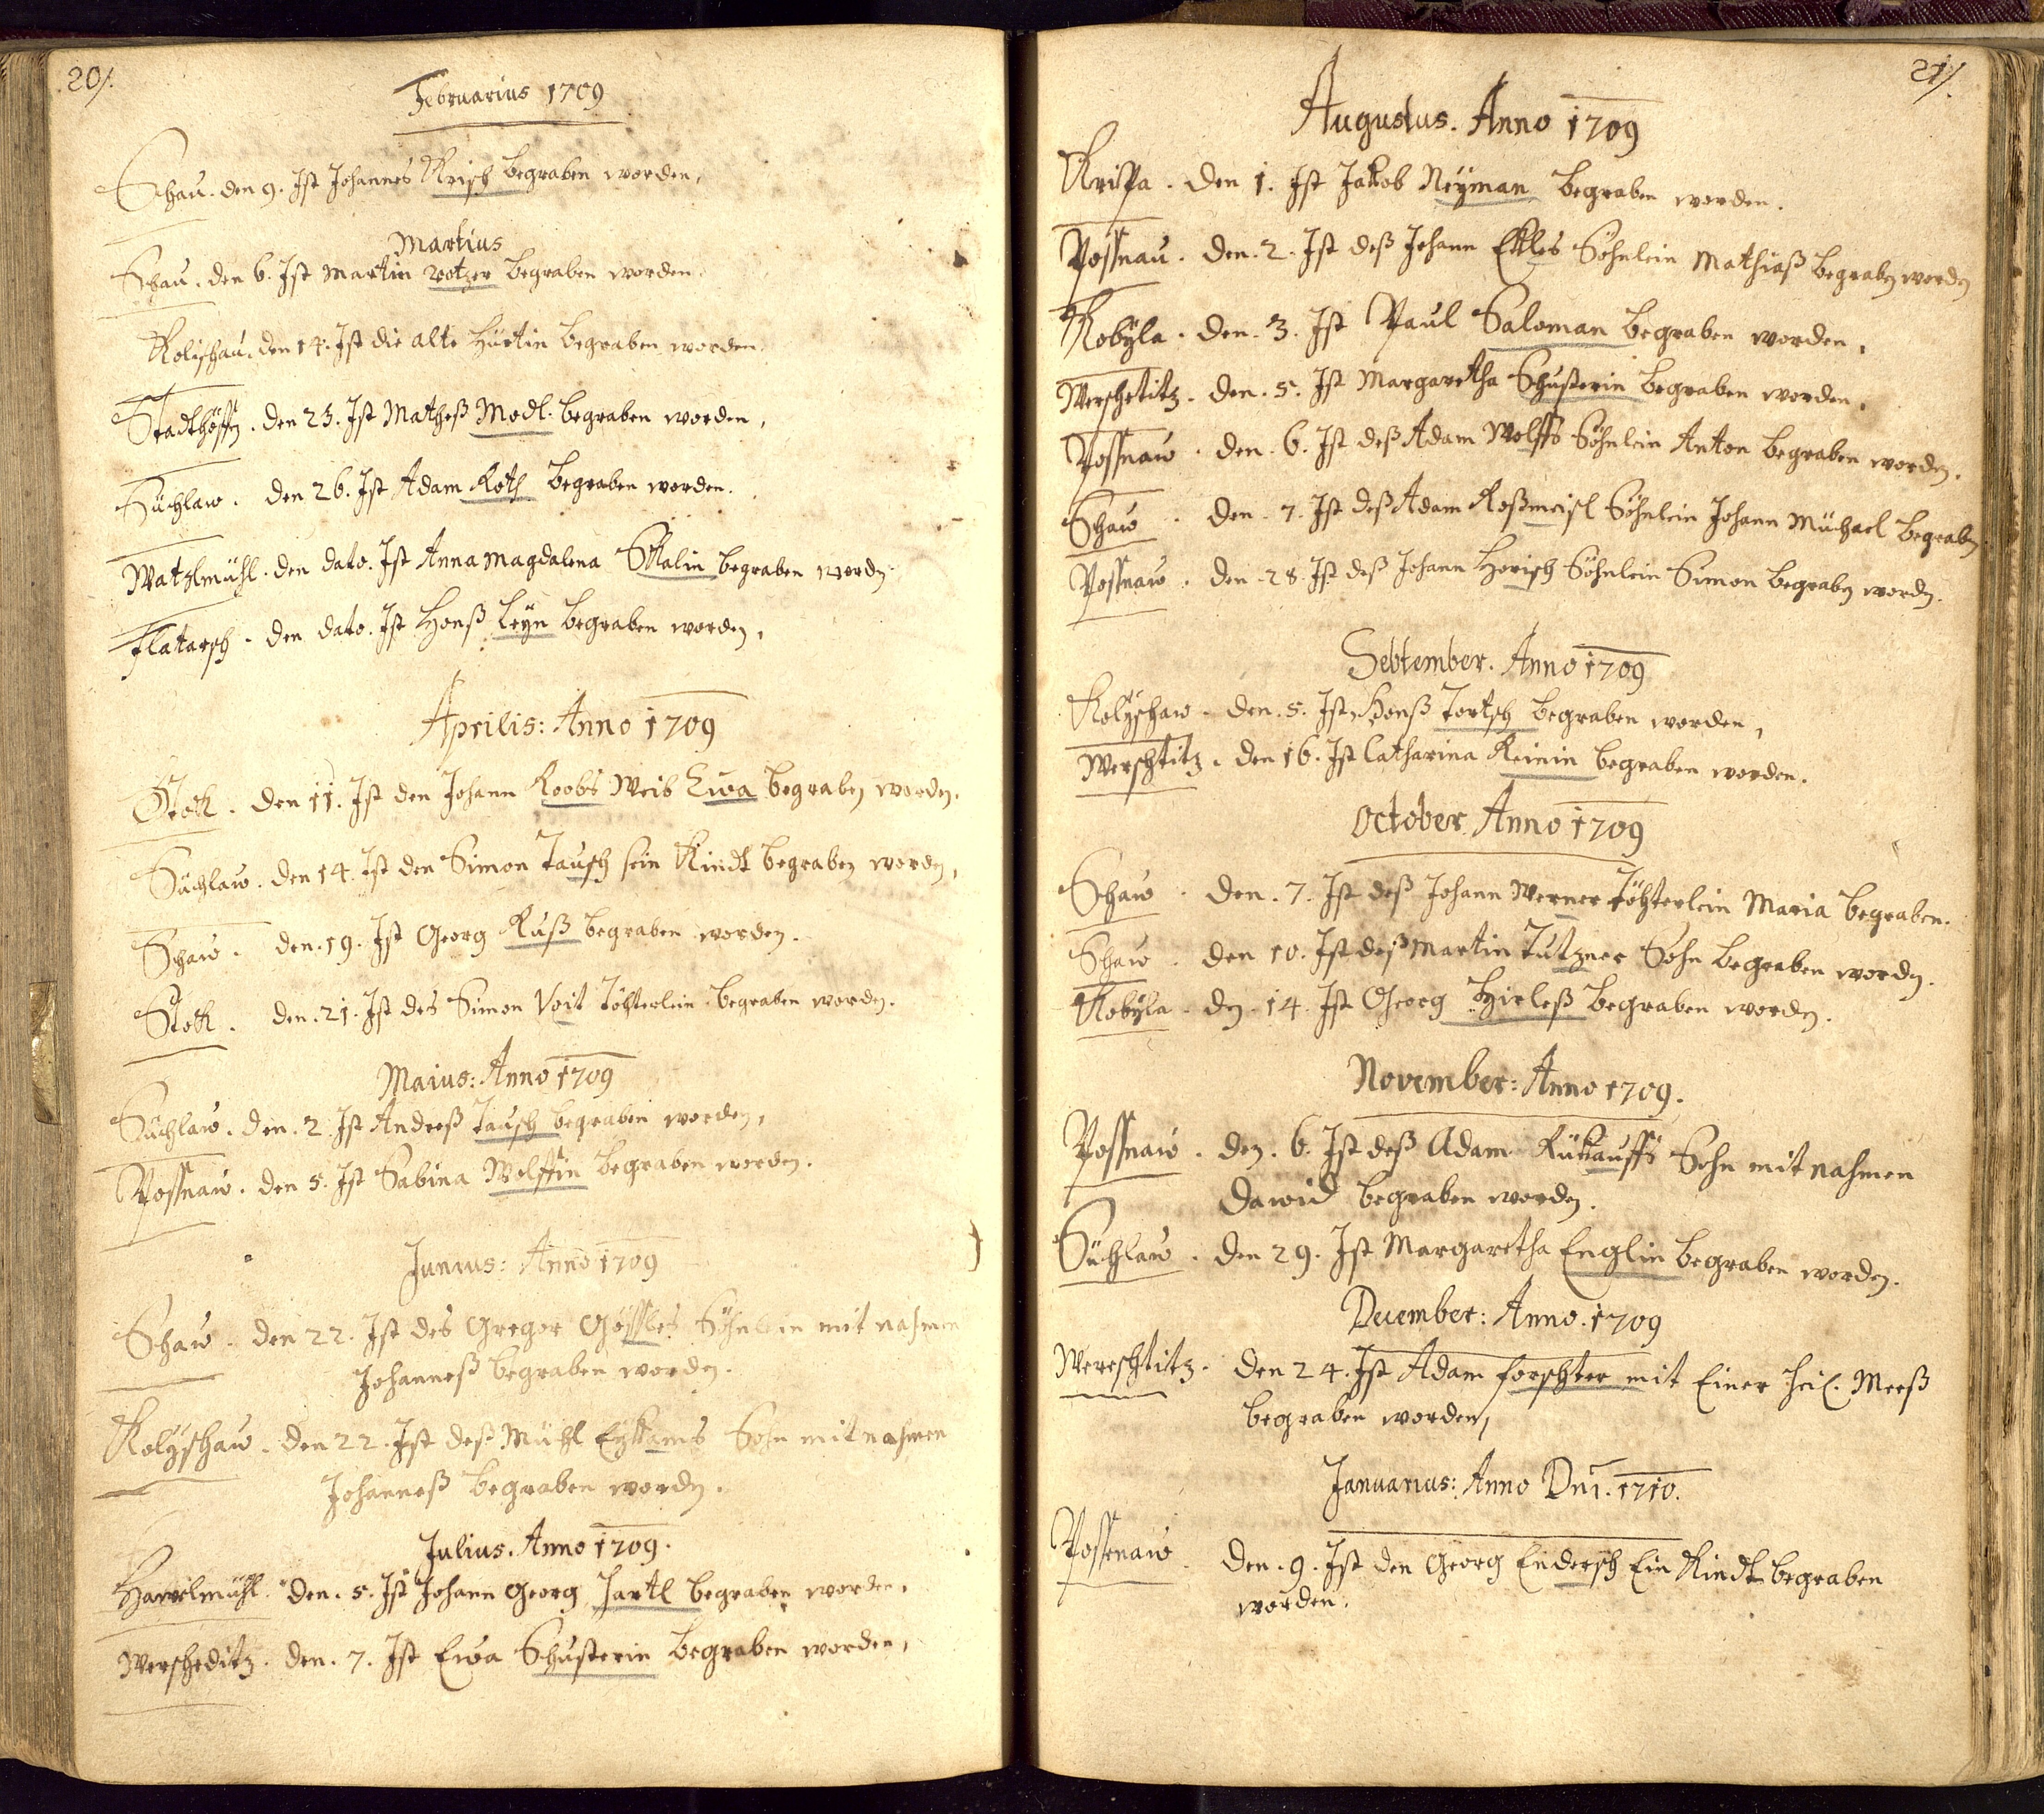 20/.
Februarius 1709
Schau. den 9. Ist Johannes Krisch begraben worden,
Martius
Schau. den 6. Ist Martin votzer begraben worden
Kolischau. den 14. Ist die alte Hürtin begraben worden.
Stadthöffn. den 23. Ist Matheß Modl. begraben worden,
Süchlaw. den 26. Ist Adam Roth begraben worden.
Watzlmühl. den dato. Ist Anna Magdalena Skalin begraben wordn
Flatarsch. den dato. Ist Honß Leyn begraben worden,
Aprilis: Anno 1709
Stokh. den 11. Ist den Johann Koobs Weib Ewa begraben worden.
Süchlaw. den 14. Ist den Simon Tausch sein Kindt begraben worden,
Schaw. den. 19. Ist Georg Kuß begraben worden.
Stokh. den. 21. Ist des Simon Voit Töchterlein begraben worden.
Maius: Anno 1709
Süchlaw. den. 2. Ist Andreß Tausch begraben worden,
Possnaw. den 5. Ist Sabina Wolffin begraben worden.
Junius: Anno 1709
Schaw. den 22. Ist des Gregor Sohnlein mit nahmen
Johanneß begraben worden.
Kolyschaw. den 22. Ist deß Mühl Sohn mit nahmen
Johanneß begraben wordn.
Julius. Anno 1709.
Hawelmühl. den. 5. Ist Johann Georg Hartl begraben worden.
Wersheditz. den. 7. Ist Ewa Schusterin begraben worden,
21/.
Augustus. Anno 1709
Krippa. den 1. Ist Jakob Neyman begraben worden.
Possnau. den. 2. Ist deß Johann Ekles Söhnlein Mathiaß begraben worden
Kobyla. den. 3. Ist Paul Saloman begraben worden,
Werschetitz. den. 5. Ist Margaretha Schusterin begraben worden,
Possnaw. den. 6. Ist deß Adam Wolffs Söhnlein Anton begraben worden.
Schaw. den. 7. Ist deß Adam Roßmeisl Söhnlein Johann Müchael begraben
Possnaw. den 28. Ist deß Johann Horisch Söhnlein Simon begraben wordn.
Sebtember. Anno 1709
Kolyschaw. den. 5. Ist Honß Tortsch begraben worden,
Werschtitz. den 16. Ist Catharina Reinin begraben worden.
October Anno 1709
Schaw. den. 7. Ist deß Johann Werner Töchterlein Maria begraben.
Schaw. den 10. Ist deß Martin Tutzner Sohn begraben wordn.
Kobyla. dn. 14. Ist Georg Hirleß begraben worden.
November: Anno 1709.
Possnaw. den. 6. Ist deß Adam Rükauffs Sohn mit nahmen
Dawid begraben worden.
Süchlaw. den 29. Ist Margaretha Englin begraben worden.
December: Anno. 1709
Wereschtitz. den 24. Ist Adam forschter mit Einer heil. Meeß
begraben worden,
Januarius: Anno Dni. 1710.
Possenaw. den. 9. Ist den Georg Endersch Ein Kindt begraben
worden.